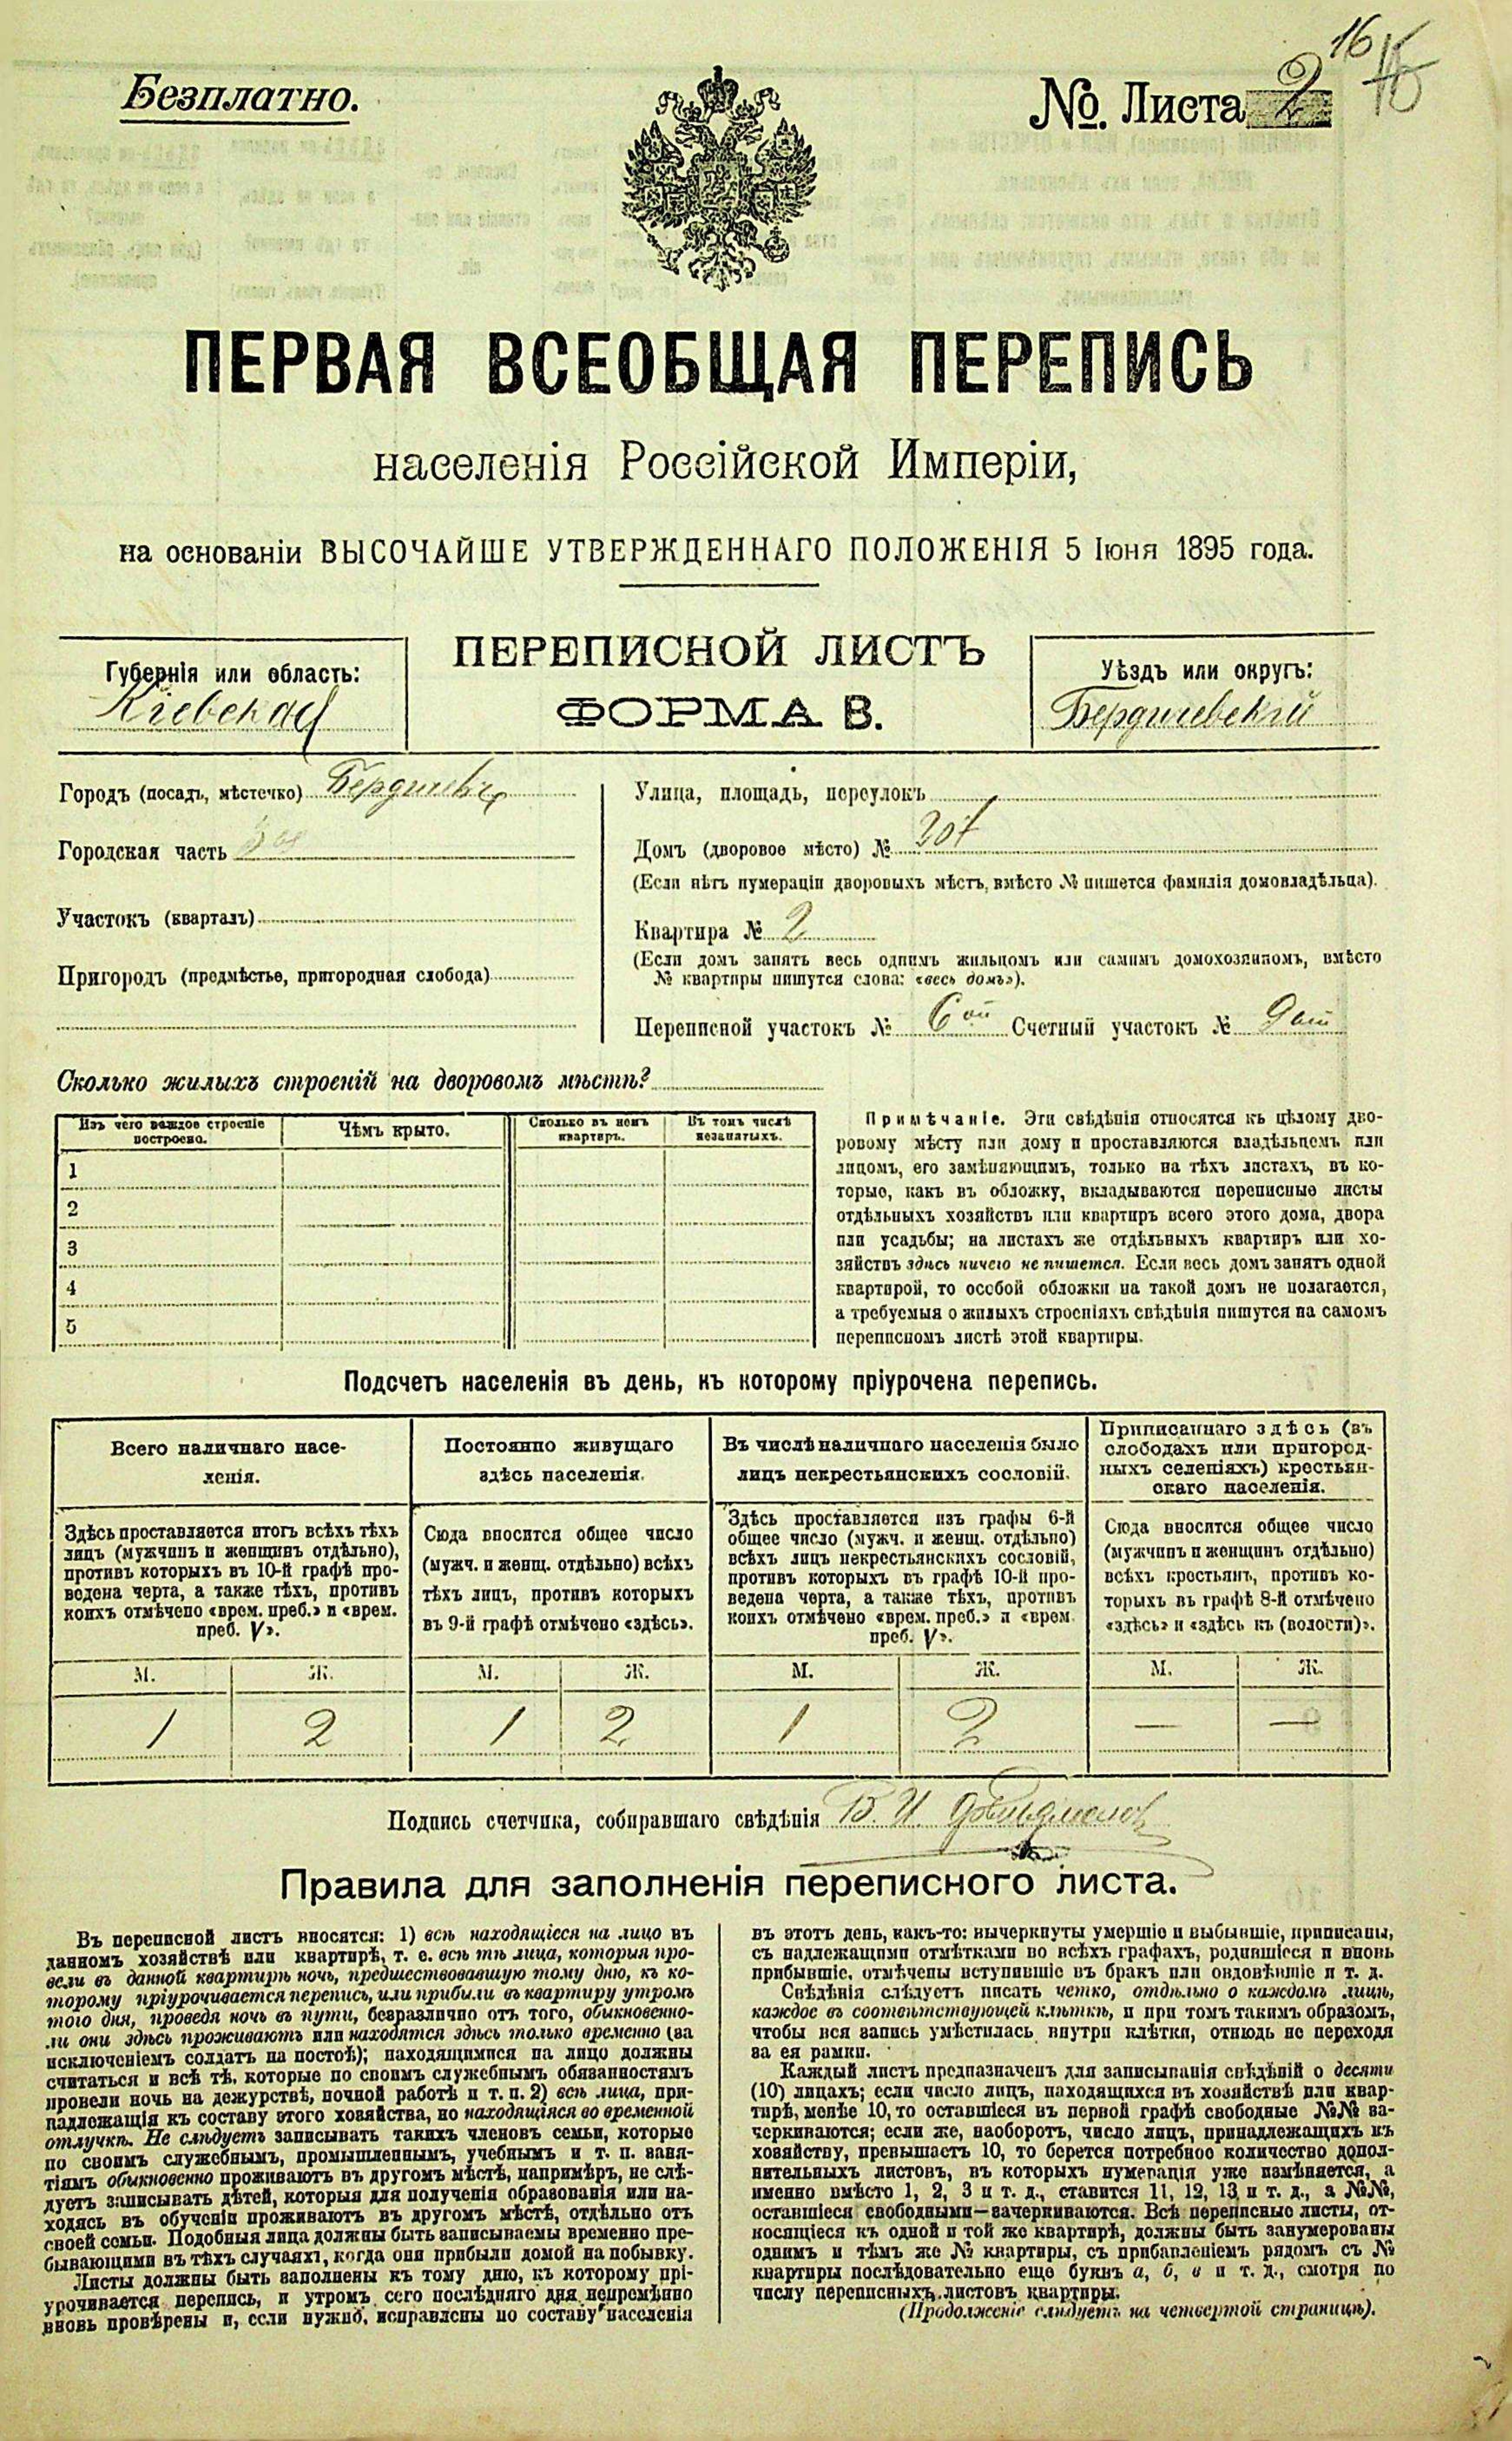 16
Безплатно.
№ Листа 2
ПЕРВАЯ ВСЕОБЩАЯ ПЕРЕПИСЬ
населенія Россійской Имперіи,
на основаніи ВЫСОЧАЙШЕ УТВЕРЖДЕННАГО ПОЛОЖЕНІЯ 5 Іюня 1895 года.
Губернія или область:
Кіевская
ПЕРЕПИСНОЙ ЛИСТЪ
ФОРМА В.
Уѣздъ или округъ:
Бердичевскій
Городъ (посадъ, мѣстечко) Бердичевъ
Городская часть
Участокъ (кварталъ)
Пригородъ (предмѣстье, пригородная слобода)
Улица, площадь, переулокъ
Домъ (дворовое мѣсто) № 307
(Если нѣтъ нумераціи дворовыхъ мѣстъ, вмѣсто № пишется фамилія домовладѣльца).
Квартира № 2
(Если домъ занятъ весь однимъ жильцомъ или самимъ домохозяиномъ, вмѣсто
№ квартиры пишутся слова: «весь домъ»).
Переписной участокъ № 6ой Счетный участокъ № 9ый
Сколько жилыхъ строеній на дворовомъ мѣстѣ?
Изъ чего каждое строеніе
построено.
Чѣмъ крыто.
Сколько въ немъ
квартиръ.
Въ томъ числѣ
незанятыхъ.
1
2
3
4
5
Примѣчаніе. Эти свѣдѣнія относятся къ цѣлому дво-
ровому мѣсту или дому и проставляются владѣльцемъ или
лицомъ, его замѣняющимъ, только на тѣхъ листахъ, въ ко-
торые, какъ въ обложку, вкладываются переписные листы
отдѣльныхъ хозяйствъ или квартиръ всего этого дома, двора
или усадьбы; на листахъ же отдѣльныхъ квартиръ или хо-
зяйствъ здѣсь ничего не пишется. Если весь домъ занятъ одной
квартирой, то особой обложки на такой домъ не полагается,
а требуемыя о жилыхъ строеніяхъ свѣдѣнія пишутся на самомъ
переписномъ листѣ этой квартиры.
Подсчетъ населенія въ день, къ которому пріурочена перепись.
Всего наличнаго насе-
ленія.
Здѣсь проставляется итогъ всѣхъ тѣхъ
лицъ (мужчинъ и женщинъ отдѣльно),
противъ которыхъ въ 10-й графѣ про-
ведена черта, а также тѣхъ, противъ
коихъ отмѣчено «врем. преб.» и «врем.
преб. V».
Постоянно живущаго
здѣсь населенія.
Сюда вносится общее число
(мужч. и женщ. отдѣльно) всѣхъ
тѣхъ лицъ, противъ которыхъ
въ 9-й графѣ отмѣчено «здѣсь».
Въ числѣ наличнаго населенія было
лицъ некрестьянскихъ сословій.
Здѣсь проставляется изъ графы 6-й
общее число (мужч. и женщ. отдѣльно)
всѣхъ лицъ некрестьянскихъ сословій,
противъ которыхъ въ графѣ 10-й про-
ведена черта, а также тѣхъ, противъ
коихъ отмѣчено «врем. преб.» и «врем.
преб. V».
Приписаннаго здѣсь (въ
слободахъ или пригород-
ныхъ селеніяхъ) крестьян-
скаго населенія.
Сюда вносится общее число
(мужчинъ и женщинъ отдѣльно)
всѣхъ крестьянъ, противъ ко-
торыхъ въ графѣ 8-й отмѣчено
«здѣсь» и «здѣсь къ (волости)».
М. Ж. М. Ж. М. Ж. М. Ж.
1 2 1 2 1 2 — —
Подпись счетчика, собиравшаго свѣдѣнія В. И.
Правила для заполненія переписного листа.
Въ переписной листъ вносятся: 1) всѣ находящіеся на лицо въ
данномъ хозяйствѣ или квартирѣ, т. е. всѣ тѣ лица, которыя про-
вели въ данной квартирѣ ночь, предшествовавшую тому дню, къ ко-
торому пріурочивается перепись, или прибыли въ квартиру утромъ
того дня, проведя ночь въ пути, безразлично отъ того, обыкновенно-
ли они здѣсь проживаютъ или находятся здѣсь только временно (за
исключеніемъ солдатъ на постоѣ); находящимися на лицо должны
считаться и всѣ тѣ, которые по своимъ служебнымъ обязанностямъ
провели ночь на дежурствѣ, ночной работѣ и т. п. 2) всѣ лица, при-
надлежащія къ составу этого хозяйства, но находящіяся во временной
отлучкѣ. Не слѣдуетъ записывать такихъ членовъ семьи, которые
по своимъ служебнымъ, промышленнымъ, учебнымъ и т. п. заня-
тіямъ обыкновенно проживаютъ въ другомъ мѣстѣ, напримѣръ, не слѣ-
дуетъ записывать дѣтей, которыя для полученія образованія или на-
ходясь въ обученіи проживаютъ въ другомъ мѣстѣ, отдѣльно отъ
своей семьи. Подобныя лица должны быть записываемы временно пре-
бывающими въ тѣхъ случаяхъ, когда они прибыли домой на побывку.
Листы должны быть заполнены къ тому дню, къ которому прі-
урочивается перепись, и утромъ сего послѣдняго дня непремѣнно
вновь провѣрены и, если нужно, исправлены по составу населенія
въ этотъ день, какъ-то: вычеркнуты умершіе и выбывшіе, приписаны,
съ надлежащими отмѣтками во всѣхъ графахъ, родившіеся и вновь
прибывшіе, отмѣчены вступившіе въ бракъ или овдовѣвшіе и т. д.
Свѣдѣнія слѣдуетъ писать четко, отдѣльно о каждомъ лицѣ,
каждое въ соотвѣтствующей клѣткѣ, и при томъ такимъ образомъ,
чтобы вся запись умѣстилась внутри клѣтки, отнюдь не переходя
за ея рамки.
Каждый листъ предназначенъ для записыванія свѣдѣній о десяти
(10) лицахъ; если число лицъ, находящихся въ хозяйствѣ или квар-
тирѣ, менѣе 10, то оставшіеся въ первой графѣ свободные №№ за-
черкиваются; если же, наоборотъ, число лицъ, принадлежащихъ къ
хозяйству, превышаетъ 10, то берется потребное количество допол-
нительныхъ листовъ, въ которыхъ нумерація уже измѣняется, а
именно вмѣсто 1, 2, 3 и т. д., ставится 11, 12, 13 и т. д., а №№,
оставшіеся свободными—зачеркиваются. Всѣ переписные листы, от-
носящіеся къ одной и той же квартирѣ, должны быть занумерованы
однимъ и тѣмъ же № квартиры, съ прибавленіемъ рядомъ съ №
квартиры послѣдовательно еще буквъ а, б, в и т. д., смотря по
числу переписныхъ листовъ квартиры.
(Продолженіе слѣдуетъ на четвертой страницѣ).